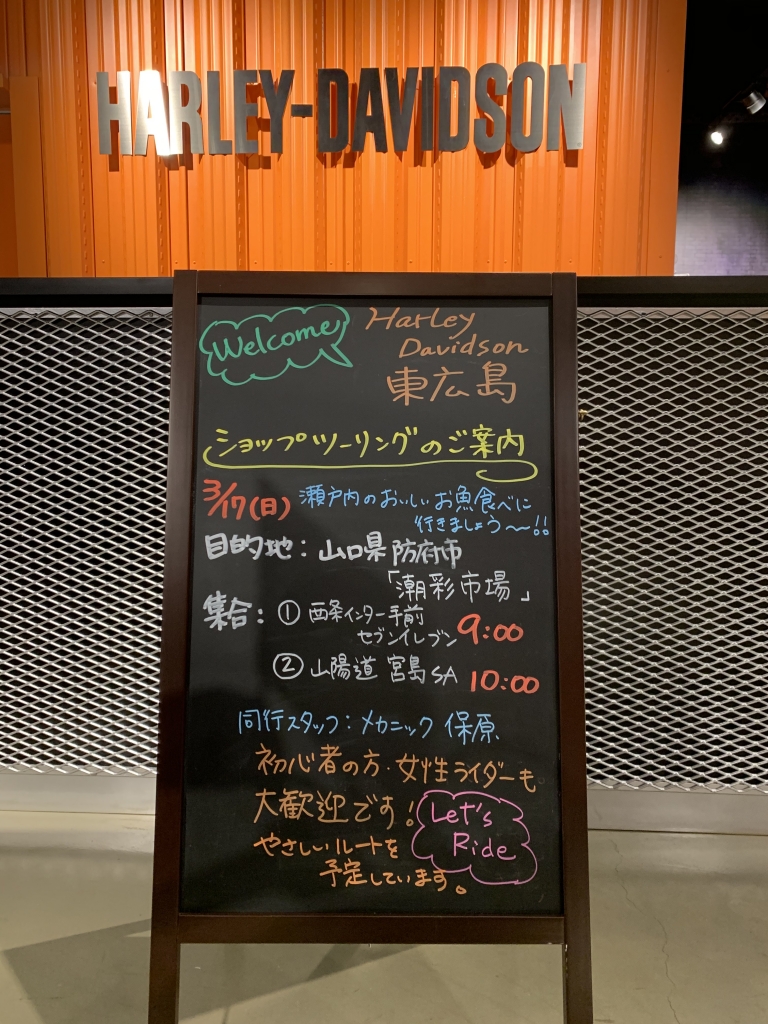 HARLEY-DAVIDSON
Welcome
Harley
Davidson
東広島
ショップツーリングのご案内
3/17(日) 瀬戸内のおいしいお魚食べに
行きましょう〜〜!!
目的地：山口県防府市
「潮彩市場」
集合：① 西条インター手前
セブンイレブン 9:00
② 山陽道 宮島SA 10:00
同行スタッフ：メカニック 保原
初心者の方・女性ライダーも
大歓迎です！
Let's
Ride
やさしいルートを
予定しています。